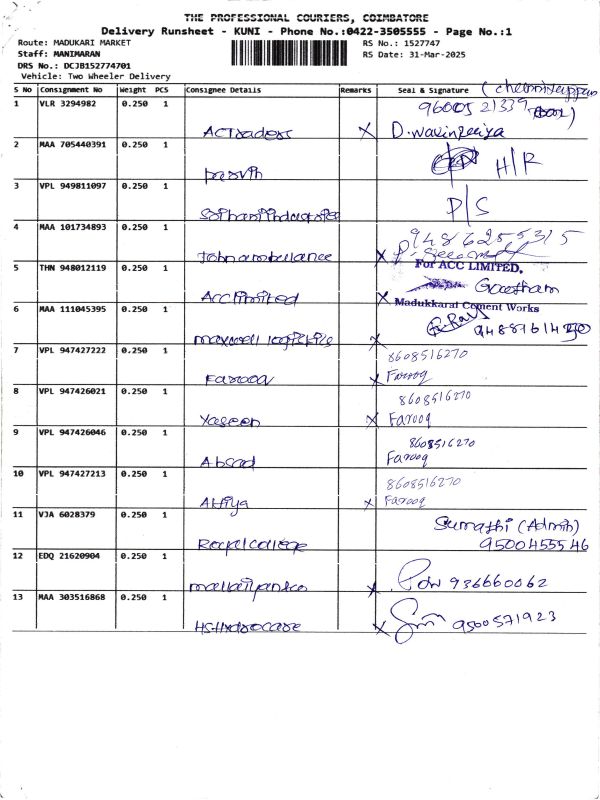 THE PROFESSIONAL COURIERS, COIMBATORE
Delivery Runsheet - KUNI - Phone No.:0422-3505555 - Page No.:1
Route: MADUKARI MARKET
RS No.: 1527747
Staff: MANIMARAN
RS Date: 31-Mar-2025
DRS No.: DCJB152774701
Vehicle: Two Wheeler Delivery
S No Consignment No Weight PCS Consignee Details Remarks Seal & Signature
1 VLR 3294982 0.250 1
9600521339
ACTraders X
2 MAA 705440391 0.250 1
H/R
3 VPL 949811097 0.250 1
P/S
4 MAA 101734893 0.250 1
9486255315
John ambulance X
5 THN 948012119 0.250 1
For ACC LIMITED,
Goutham
ACC limited X
Madukkarai Cement Works
6 MAA 111045395 0.250 1
maxwell X
7 VPL 947427222 0.250 1
8608516270
Farooq X Farooq
8 VPL 947426021 0.250 1
8608516270
Yaseen X Farooq
9 VPL 947426046 0.250 1
8608516270
Absad Farooq
10 VPL 947427213 0.250 1
8608516270
Atiya X Farooq
11 VJA 6028379 0.250 1
Sumathi (Admin)
Royal College 9500455546
12 EDQ 21620904 0.250 1
X 936660062
13 MAA 303516868 0.250 1
HS-Hydrocare X 9500571923